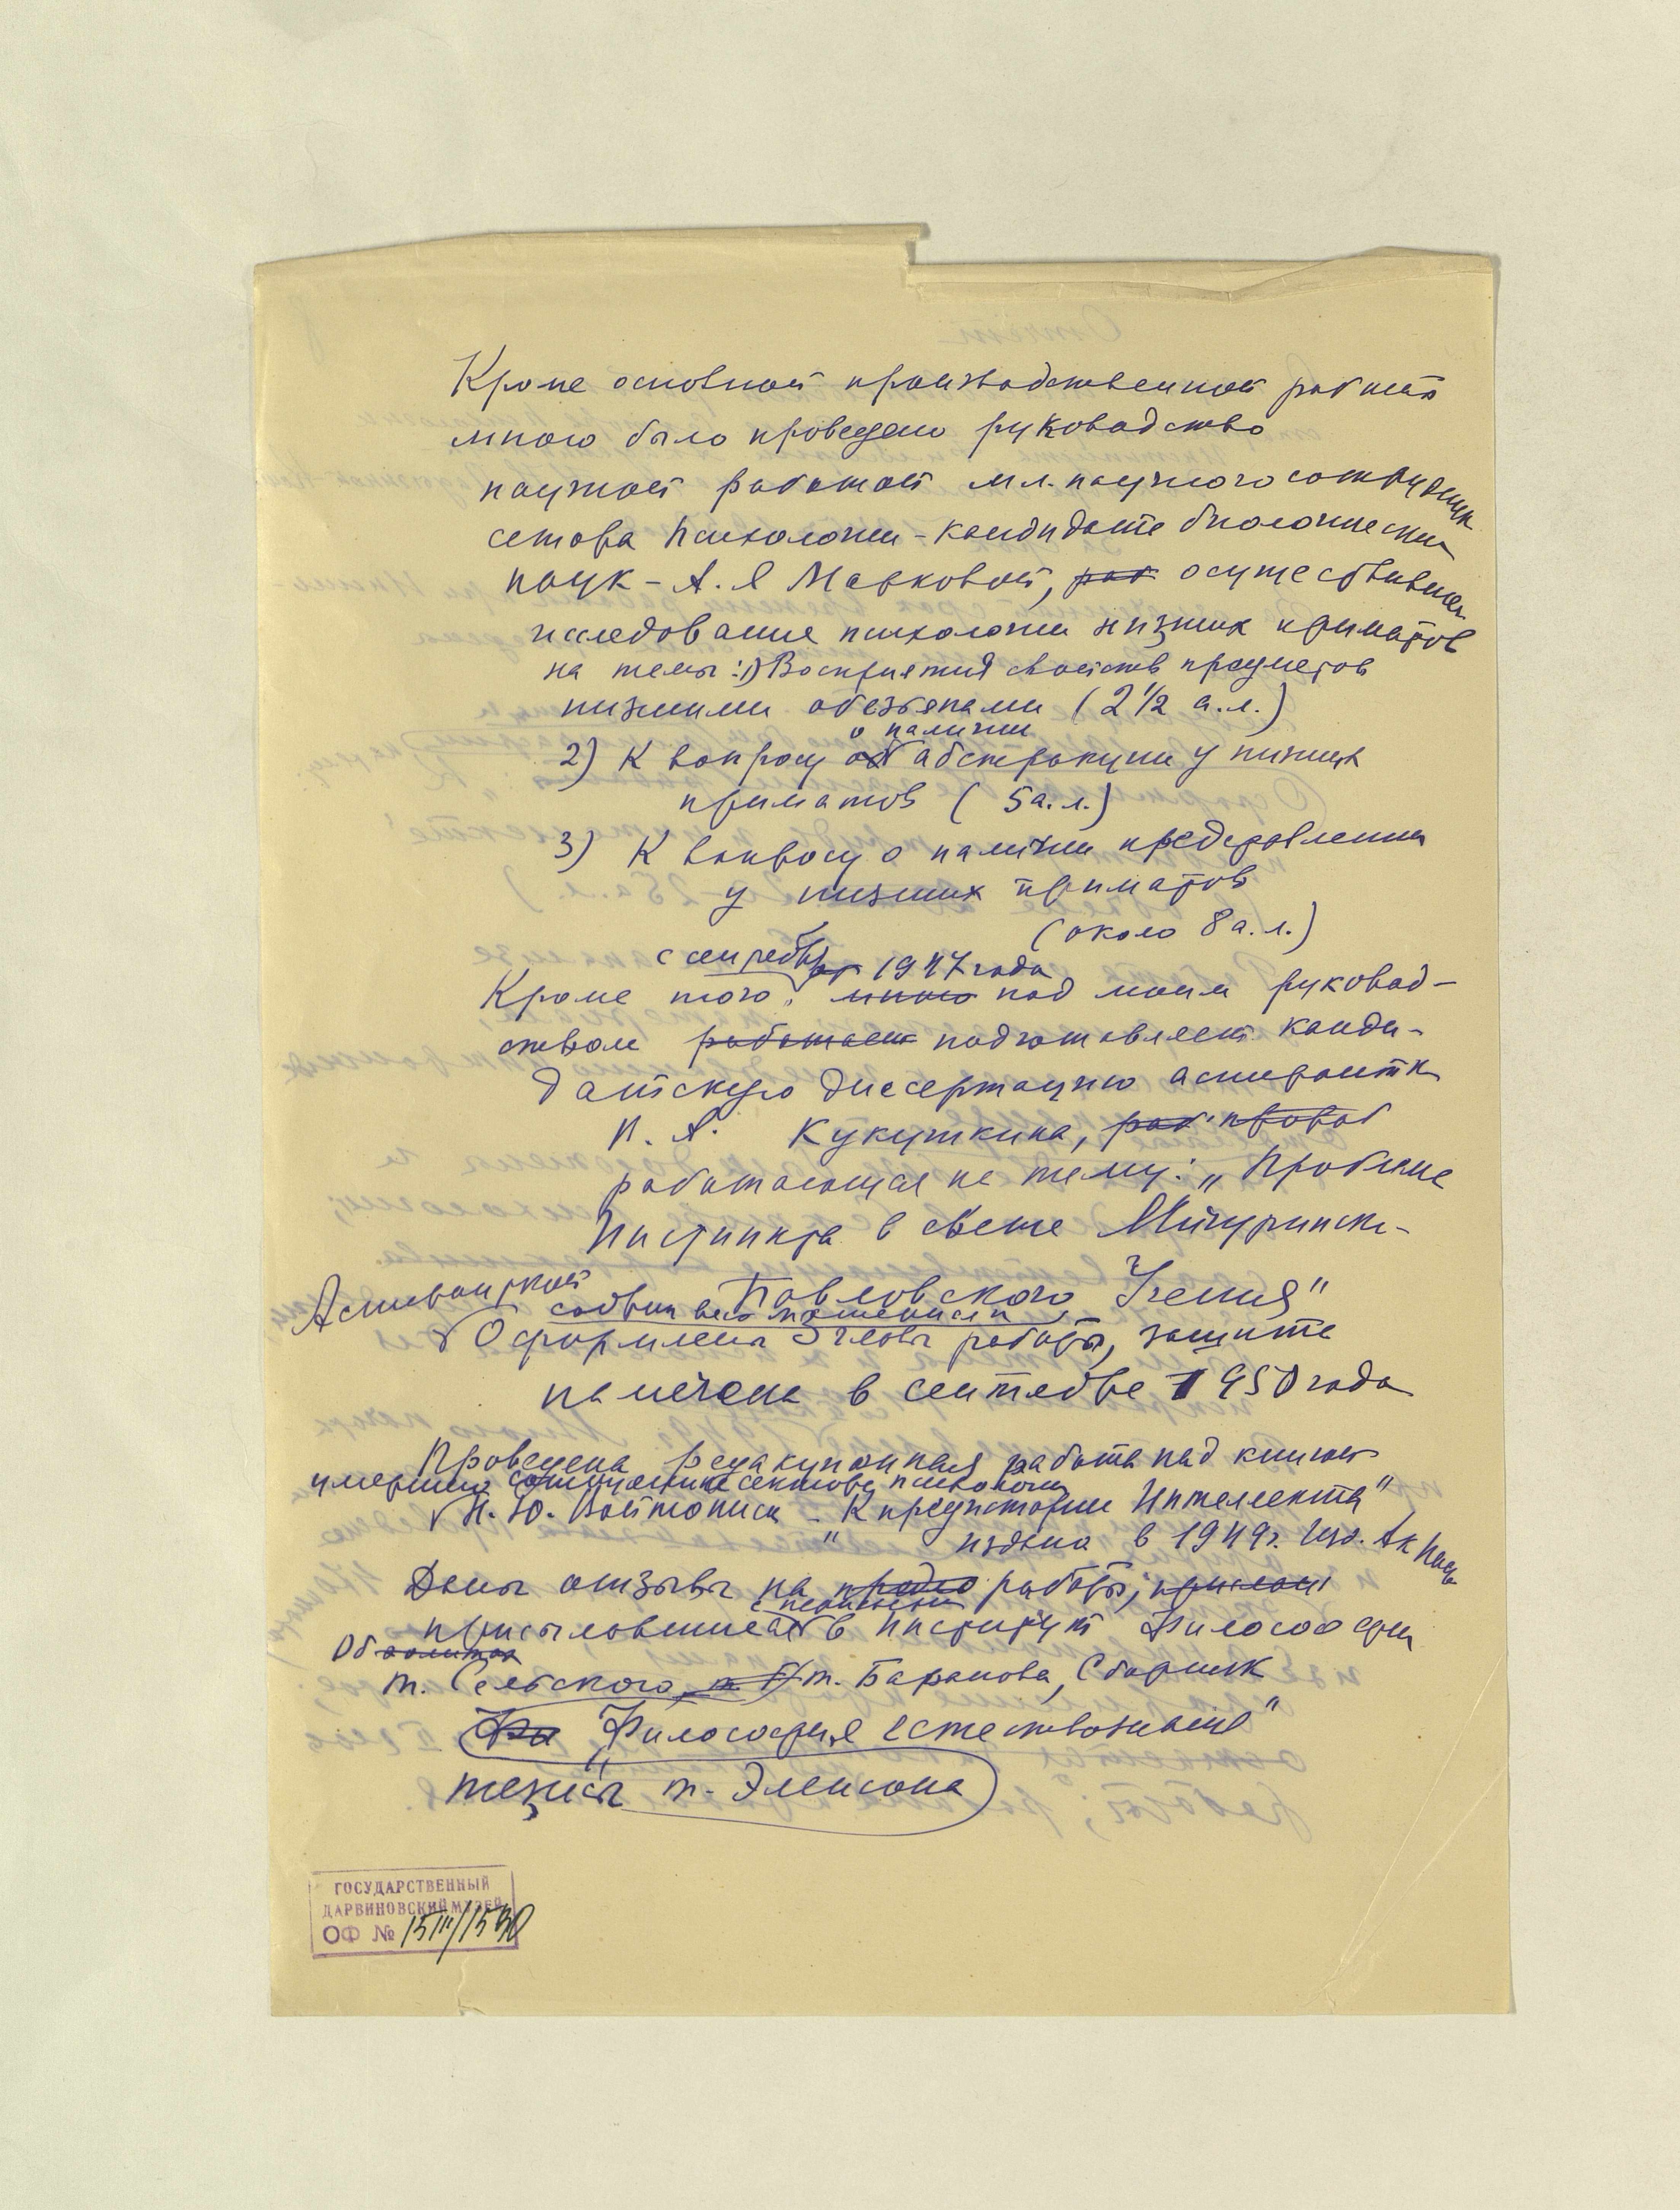 Кроме основной производственной работы
мною было проведено руководство
научной работой мл. научного сотрудник
сектора психологии - кандидата биологических
наук - А. Я Марковой, раб осуществившей
исследование психологии низших приматов
на темы: 1) Восприятия свойств предметов
низшими обезьянами (2 1/2 а.л.)
о наличии
2) К вопросу об абстракции у низших
приматов (5 а.л.)
3) К вопросу о наличии представления
у низших приматов
(около 8 а.л.)
с сентября 1947 года
Кроме того, мною под моим руковод-
ством работает подготовляет канди-
датскую диссертацию аспирантка
Кукушкина,
работающая на тему: „Проблема
Инстинкта в свете Мичуринско-
Павловского Учения"
Аспиранткой
Оформлены 3 главы работы, защита
намечена в сентябре 1950 года
Проведена редакционная работа над книгой
умершего сотрудника сектора психологии
Н. Ю. Войтониса - К предистории Интеллекта"
" издана в 1949 г. Изд. Ак Наук
Даны отзывы на работы,
присылавшиеся в Институт Философии
Об
т. Сельского, т. Баранова, Сборник
„Философия естествознания"
тезисы т.
ГОСУДАРСТВЕННЫЙ
ДАРВИНОВСКИЙ МУЗЕЙ
ОФ № 15III/1530